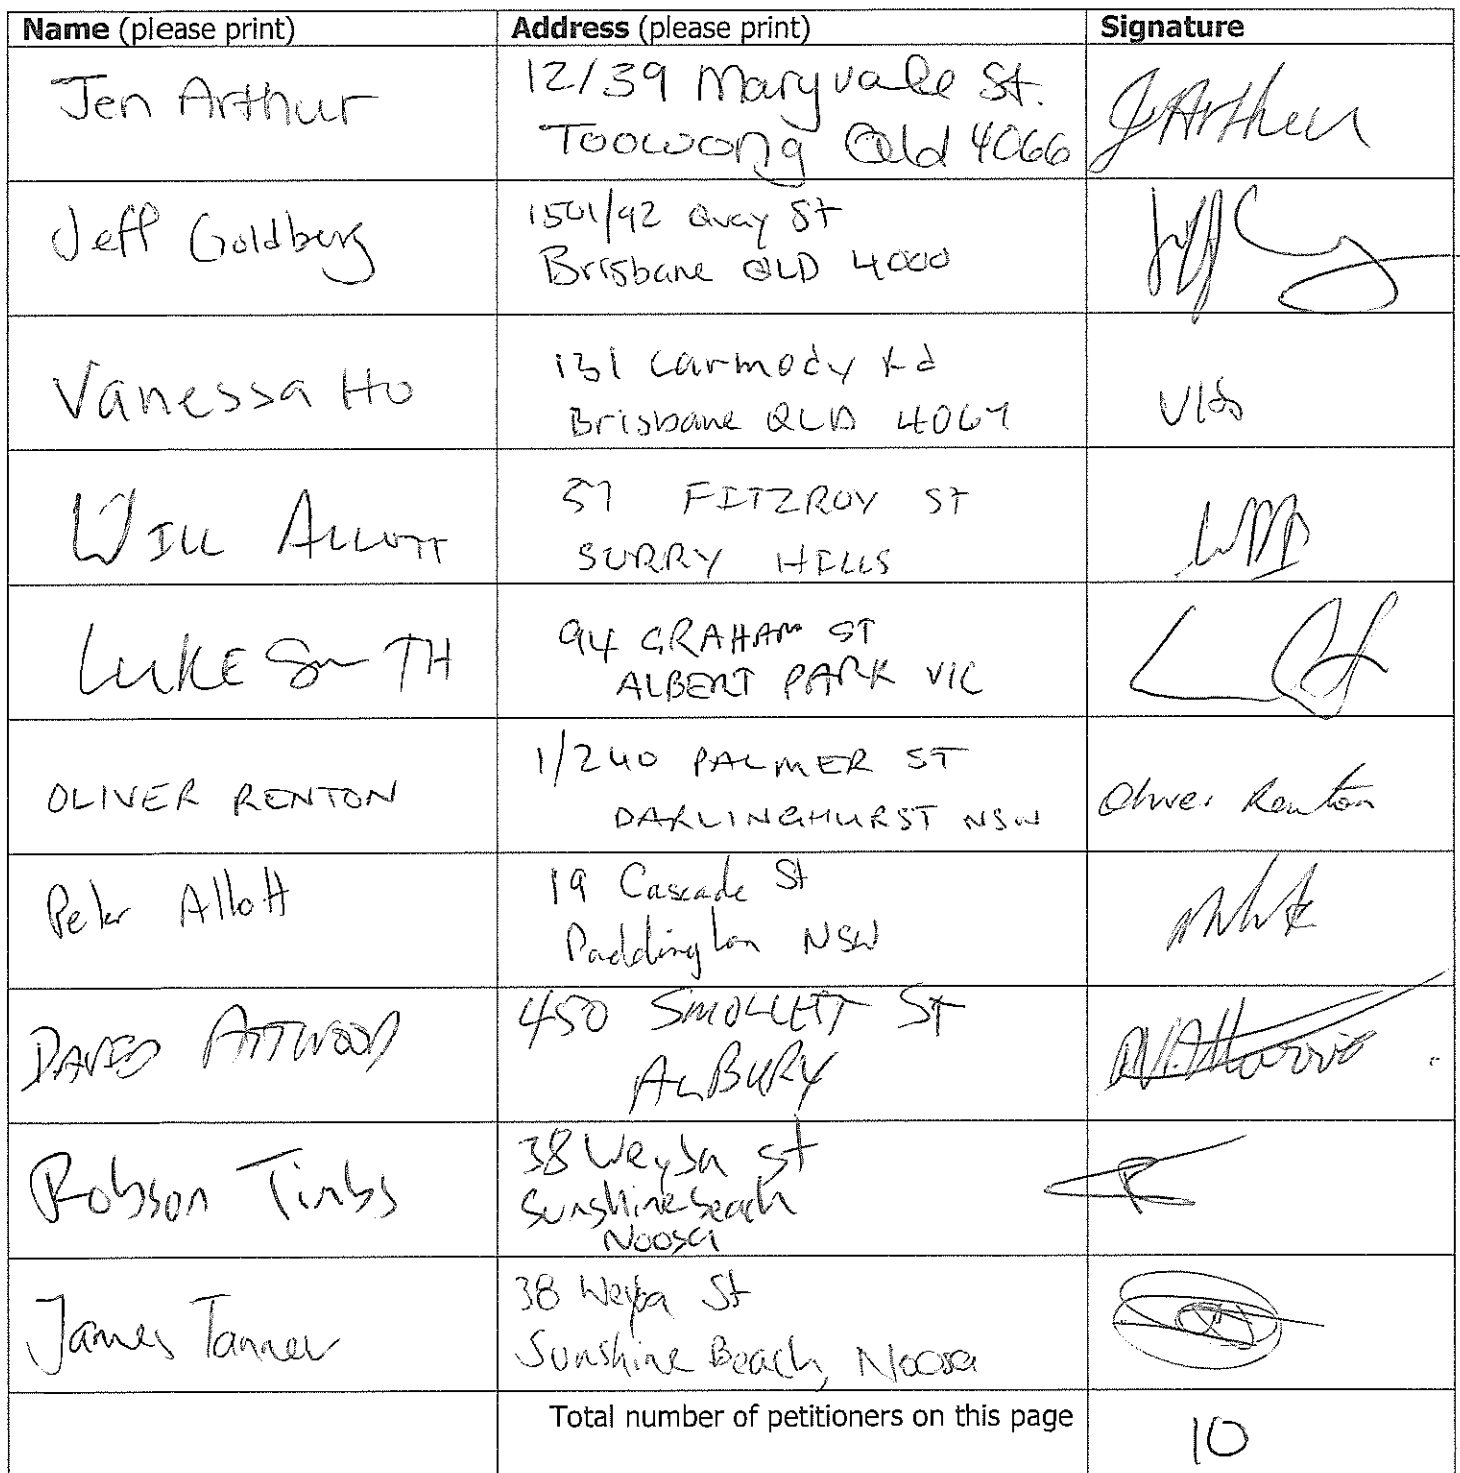 Name (please print) Address (please print) Signature
Jen Arthur
12/39 Maryvale St.
Toowong Qld 4066
JArthur
Jeff Goldberg
1501/92 Quay St
Brisbane QLD 4000
Vanessa Ho
131 Carmody Rd
Brisbane QLD 4067
VHo
WILL ALLOTT
57 FITZROY ST
SURRY HILLS
LUKE SMITH
94 GRAHAM ST
ALBERT PARK VIC
OLIVER RENTON
1/240 PALMER ST
DARLINGHURST NSW
Oliver Renton
Peter Allott
19 Cascade St
Paddington NSW
DAVID ATTWOOD
450 SMOLLETT ST
ALBURY
Robson Timbs
38 Weyba St
Sunshine beach
Noosa
James Tanner
38 Weyba St
Sunshine Beach, Noosa
Total number of petitioners on this page 10